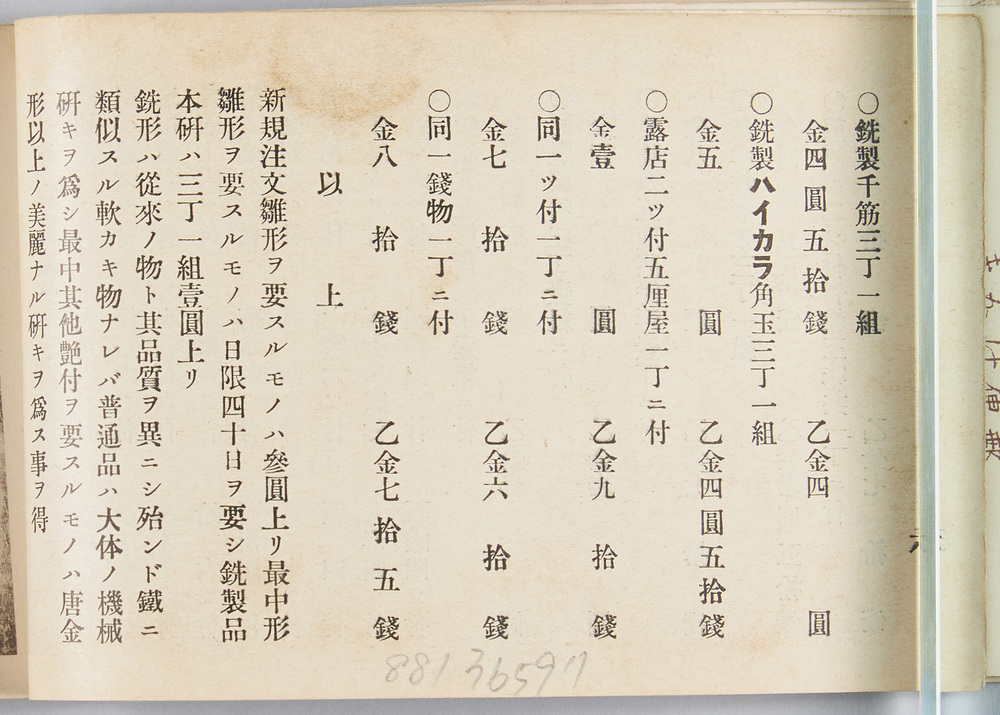 ○銑製千筋三丁一組
金四圓五拾錢　乙金四圓
○銑製ハイカラ角玉三丁一組
金五圓　乙金四圓五拾錢
○露店二ツ付五厘屋一丁ニ付
金壹圓　乙金九拾錢
○同一ツ付一丁ニ付
金七拾錢　乙金六拾錢
○同一錢物一丁ニ付
金八拾錢　乙金七拾五錢
以上
新規注文雛形ヲ要スルモノハ參圓上リ最中形
雛形ヲ要スルモノハ日限四十日ヲ要シ銑製品
本硏ハ三丁一組壹圓上リ
銑形ハ從來ノ物ト其品質ヲ異ニシ殆ンド鐵ニ
類似スル軟カキ物ナレバ普通品ハ大体ノ機械
硏キヲ爲シ最中其他艶付ヲ要スルモノハ唐金
形以上ノ美麗ナル硏キヲ爲ス事ヲ得
88136597